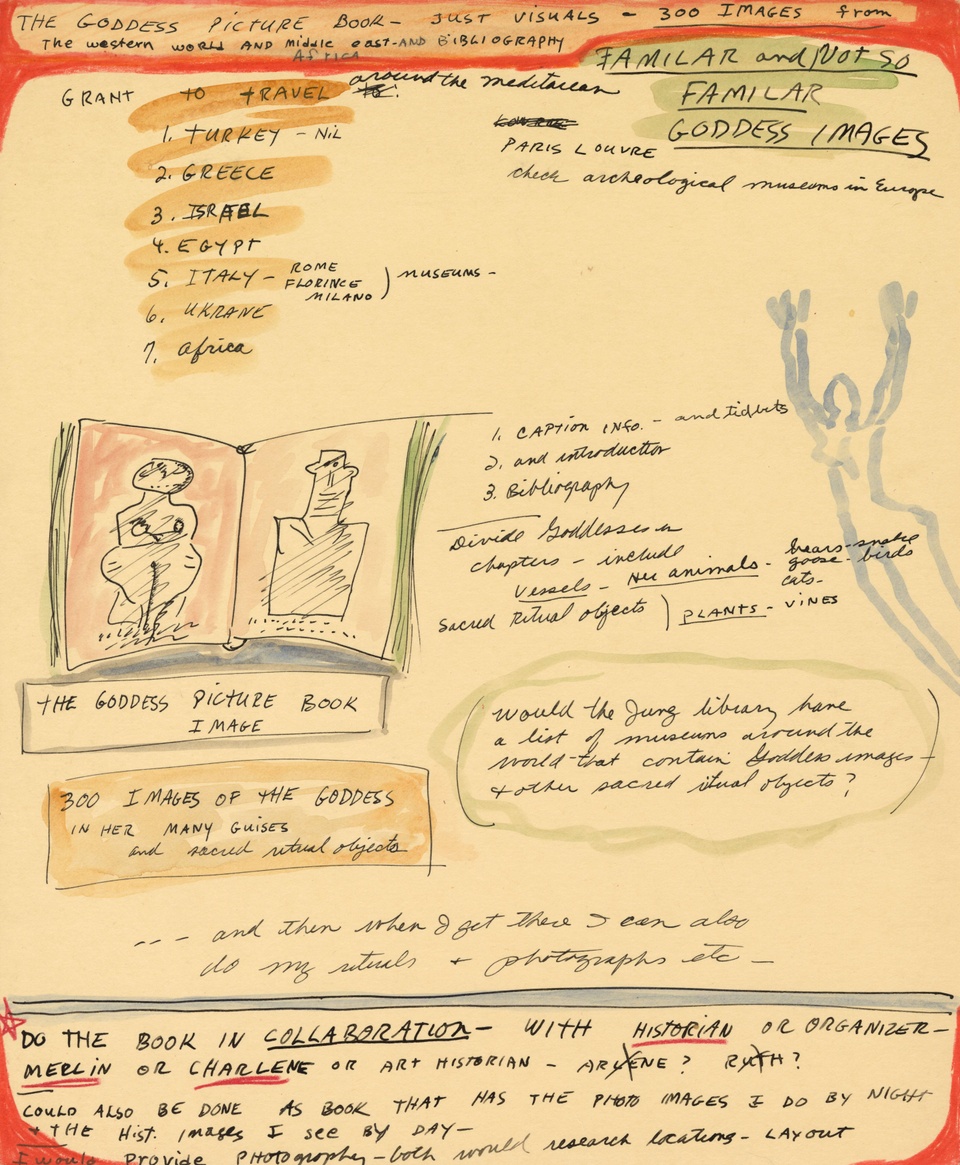 THE GODDESS PICTURE BOOK - JUST VISUALS - 300 IMAGES from
The western world AND Middle east - AND BIBLIOGRAPHY
Africa
FAMILAR and/Not SO
FAMILAR
GODDESS IMAGES
GRANT TO TRAVEL around the meditarean
1. TURKEY - Nil
2. GREECE
3. ISRAEL
4. EGYPT
5. ITALY - ROME
FLORINCE
MILANO ) MUSEUMS -
6. UKRANE
7. Africa
PARIS LOUVRE
check archeological museums in Europe
1. CAPTION INFO. - and tidbits
2. and introduction
3. Bibliography
Divide Goddesses in
chapters - include
Vessels - Her animals - bears - snake
goose - birds
cats -
Sacred Ritual objects ) PLANTS - VINES
THE GODDESS PICTURE BOOK
IMAGE
(would the Jung library have
a list of museums around the
world that contain Goddess images -
+ other sacred itual objects?)
300 IMAGES OF THE GODDESS
IN HER MANY GUISES
and sacred ritual objects
--- and then when I get there I can also
do my rituals + photographs etc -
DO THE BOOK IN COLLABORATION - WITH HISTORIAN OR ORGANIZER -
MERLIN OR CHARLENE OR ART HISTORIAN - ARLENE? RUTH?
COULD ALSO BE DONE AS BOOK THAT HAS THE PHOTO IMAGES I DO BY NIGHT
+ THE Hist. Images I see BY DAY -
I would Provide PHotography - both would research locations - LAYOUT